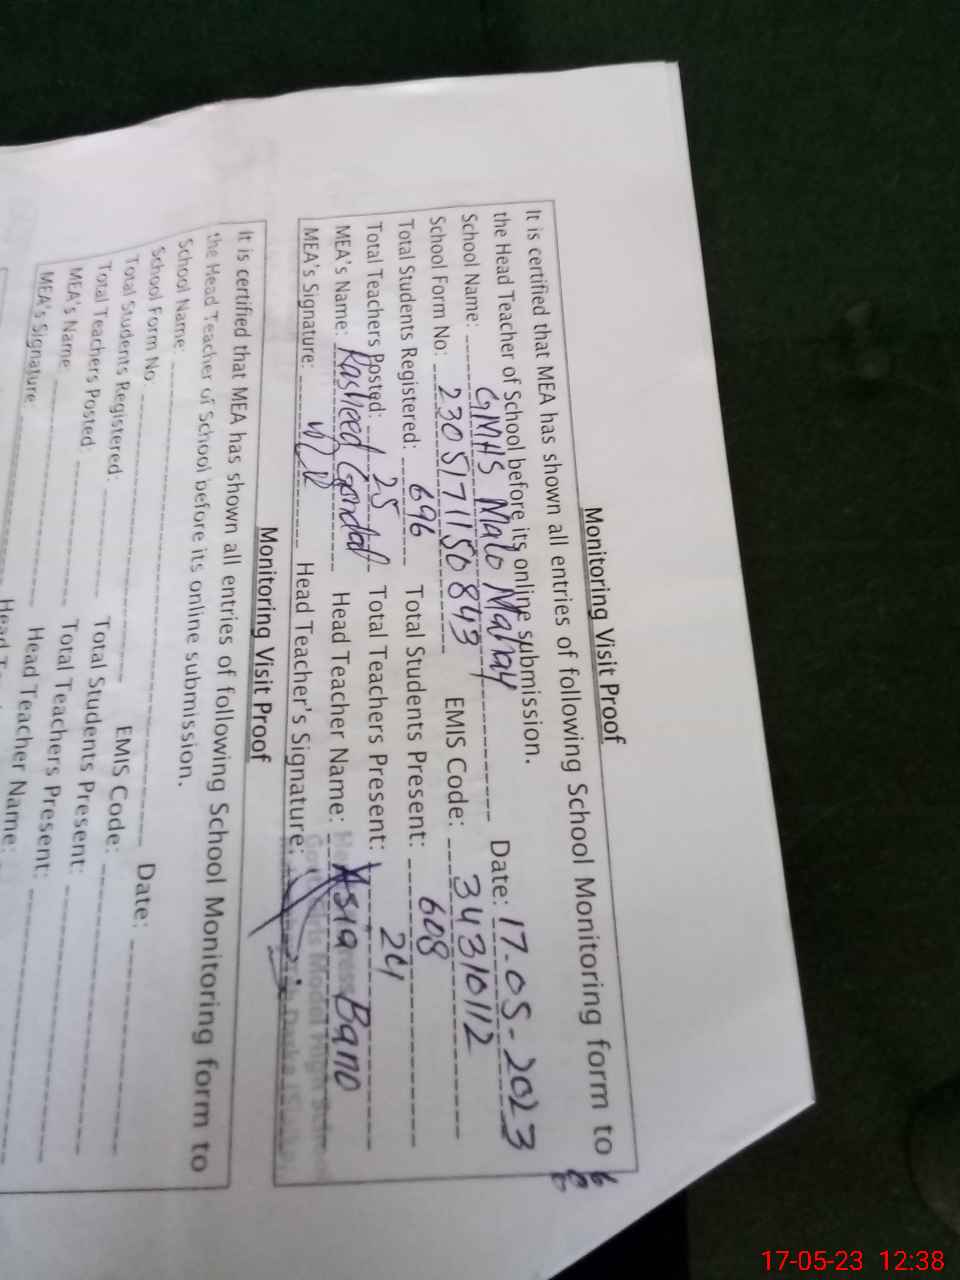 Monitoring Visit Proof
It is certified that MEA has shown all entries of following School Monitoring form to
the Head Teacher of School before its online submission.
School Name: GMHS Malo Mahay Date: 17-05-2023
School Form No: 2305171150843 EMIS Code: 34310112
Total Students Registered: 696 Total Students Present: 608
Total Teachers Posted: 25 Total Teachers Present: 24
MEA's Name: Rasheed Gondal Head Teacher Name: Asia Bano
MEA's Signature: Head Teacher's Signature:
Monitoring Visit Proof
It is certified that MEA has shown all entries of following School Monitoring form to
the Head Teacher of School before its online submission.
School Name: Date:
School Form No EMIS Code:
Total Students Registered: Total Students Present:
Total Teachers Posted: Total Teachers Present:
MEA's Name: Head Teacher Name:
MEA's Signature:
17-05-23 12:38